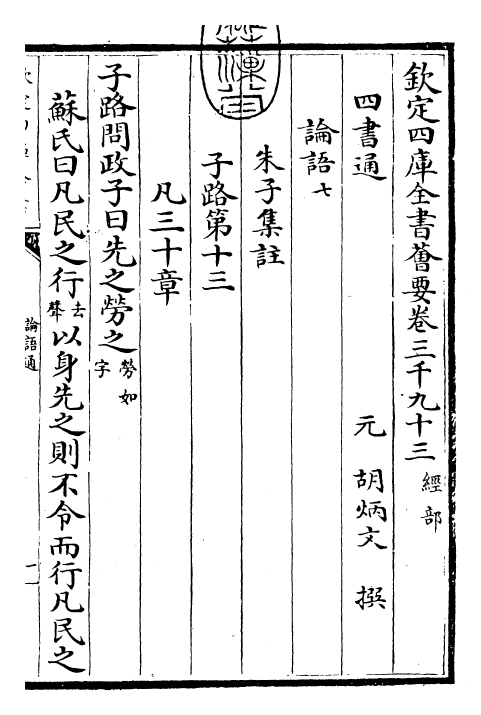 欽定四庫全書薈要卷三千九十三 經部
四書通 元 胡炳文 撰
論語七
朱子集註
子路第十三
凡三十章
子路問政子曰先之勞之 勞如字
蘇氏曰凡民之行 去聲 以身先之則不令而行凡民之
論語通